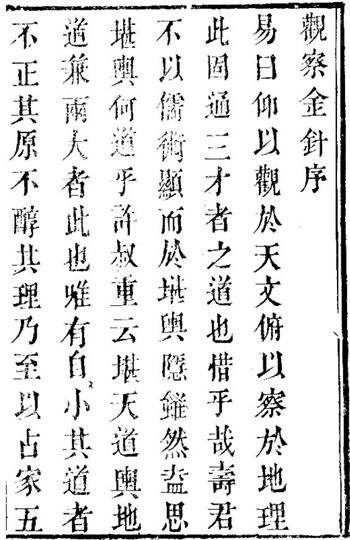 觀察金針序
易曰仰以觀於天文俯以察於地理
此固通三才者之道也惜乎哉壽君
不以儒術顯而於堪輿隱雖然盍思
堪輿何道乎許叔重云堪天道輿地
道兼兩大者此也唯有自小其道者
不正其原不醇其理乃至以占家五